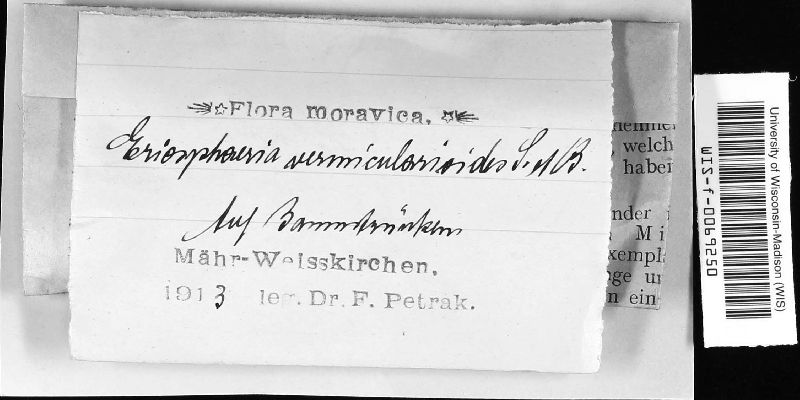 Flora moravica.
Eriosphaeria vermicularioides S. et B.
Auf Baumstrünken
Mähr-Weisskirchen.
1913 leg. Dr. F. Petrak.
welch
haben
nder
Mi
xempl
n ein
University of Wisconsin-Madison (WIS)
WIS-f-0069250